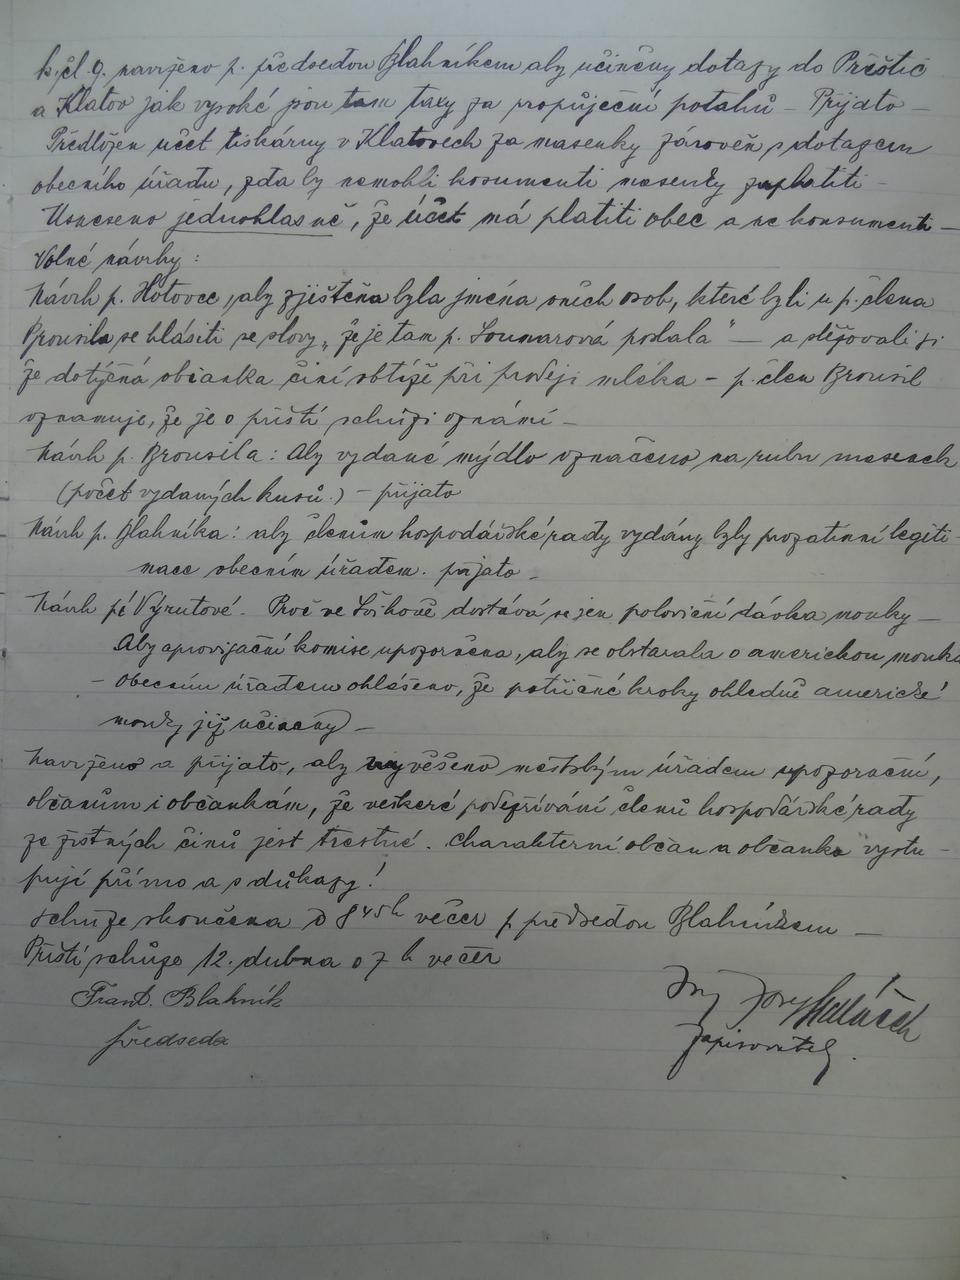 k čl. 9. navrženo p. předsedou Blahníkem aby učiněny dotazy do Přeštic
a Klatov jak vysoké jsou tam taxy za propůjčení potahů – Přijato –
Předložen účet tiskárny v Klatovech za masenky zároveň s dotazem
obecního úřadu, zda by nemohli konsumenti masenky zaplatiti –
Usneseno jednohlasně, že účet má platiti obec a ne konsumenti –
Volné návrhy :
Návrh p. Hotovce, aby zjištěna byla jména oněch osob, které byli u p. člena
Brousila se hlásiti se slovy „že je tam p. Soumarová poslala" — a stěžovali si
že dotyčná občanka činí obtíže při prodeji mléka – p. člen Brousil
oznamuje, že je o příští schůzi oznámí –
Návrh p. Brousila : Aby vydané mýdlo označeno na rubu masenek
(počet vydaných kusů.) – přijato
Návrh p. Blahníka : aby členům hospodářské rady vydány byly prozatimní legiti-
mace obecním úřadem. přijato –
Návrh pí Výrutové. Proč ve dostává se jen poloviční dávka mouky –
Aby aprovisační komise upozorněna, aby se obstarala o americkou mouku
– obecním úřadem ohlášeno, že patřičné kroky ohledně americké
mouky již učiněny –
Navrženo a přijato, aby vyvěšeno městským úřadem upozornění,
občanům i občankám, že veškeré podezřívání členů hospodářské rady
ze zištných činů jest trestné. Charakterní občan a občanka vystu-
pují přímo a s důkazy!
Schůze skončena o 8 45 h večer p předsedou Blahníkem –
Příští schůze 12. dubna o 7 h večer
Frant. Blahník
předseda
zapisovatel.